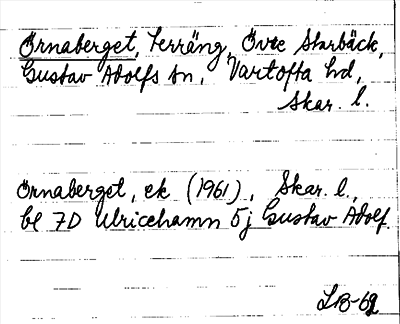 Örnaberget, Terräng, Övre Starbäck,
Gustav Adolfs sn, Vartofta hd,
Skar. l.
Örnaberget, ek (1961), Skar. l.,
bl 7D Ulricehamn 5j Gustav Adolf.
LB-62